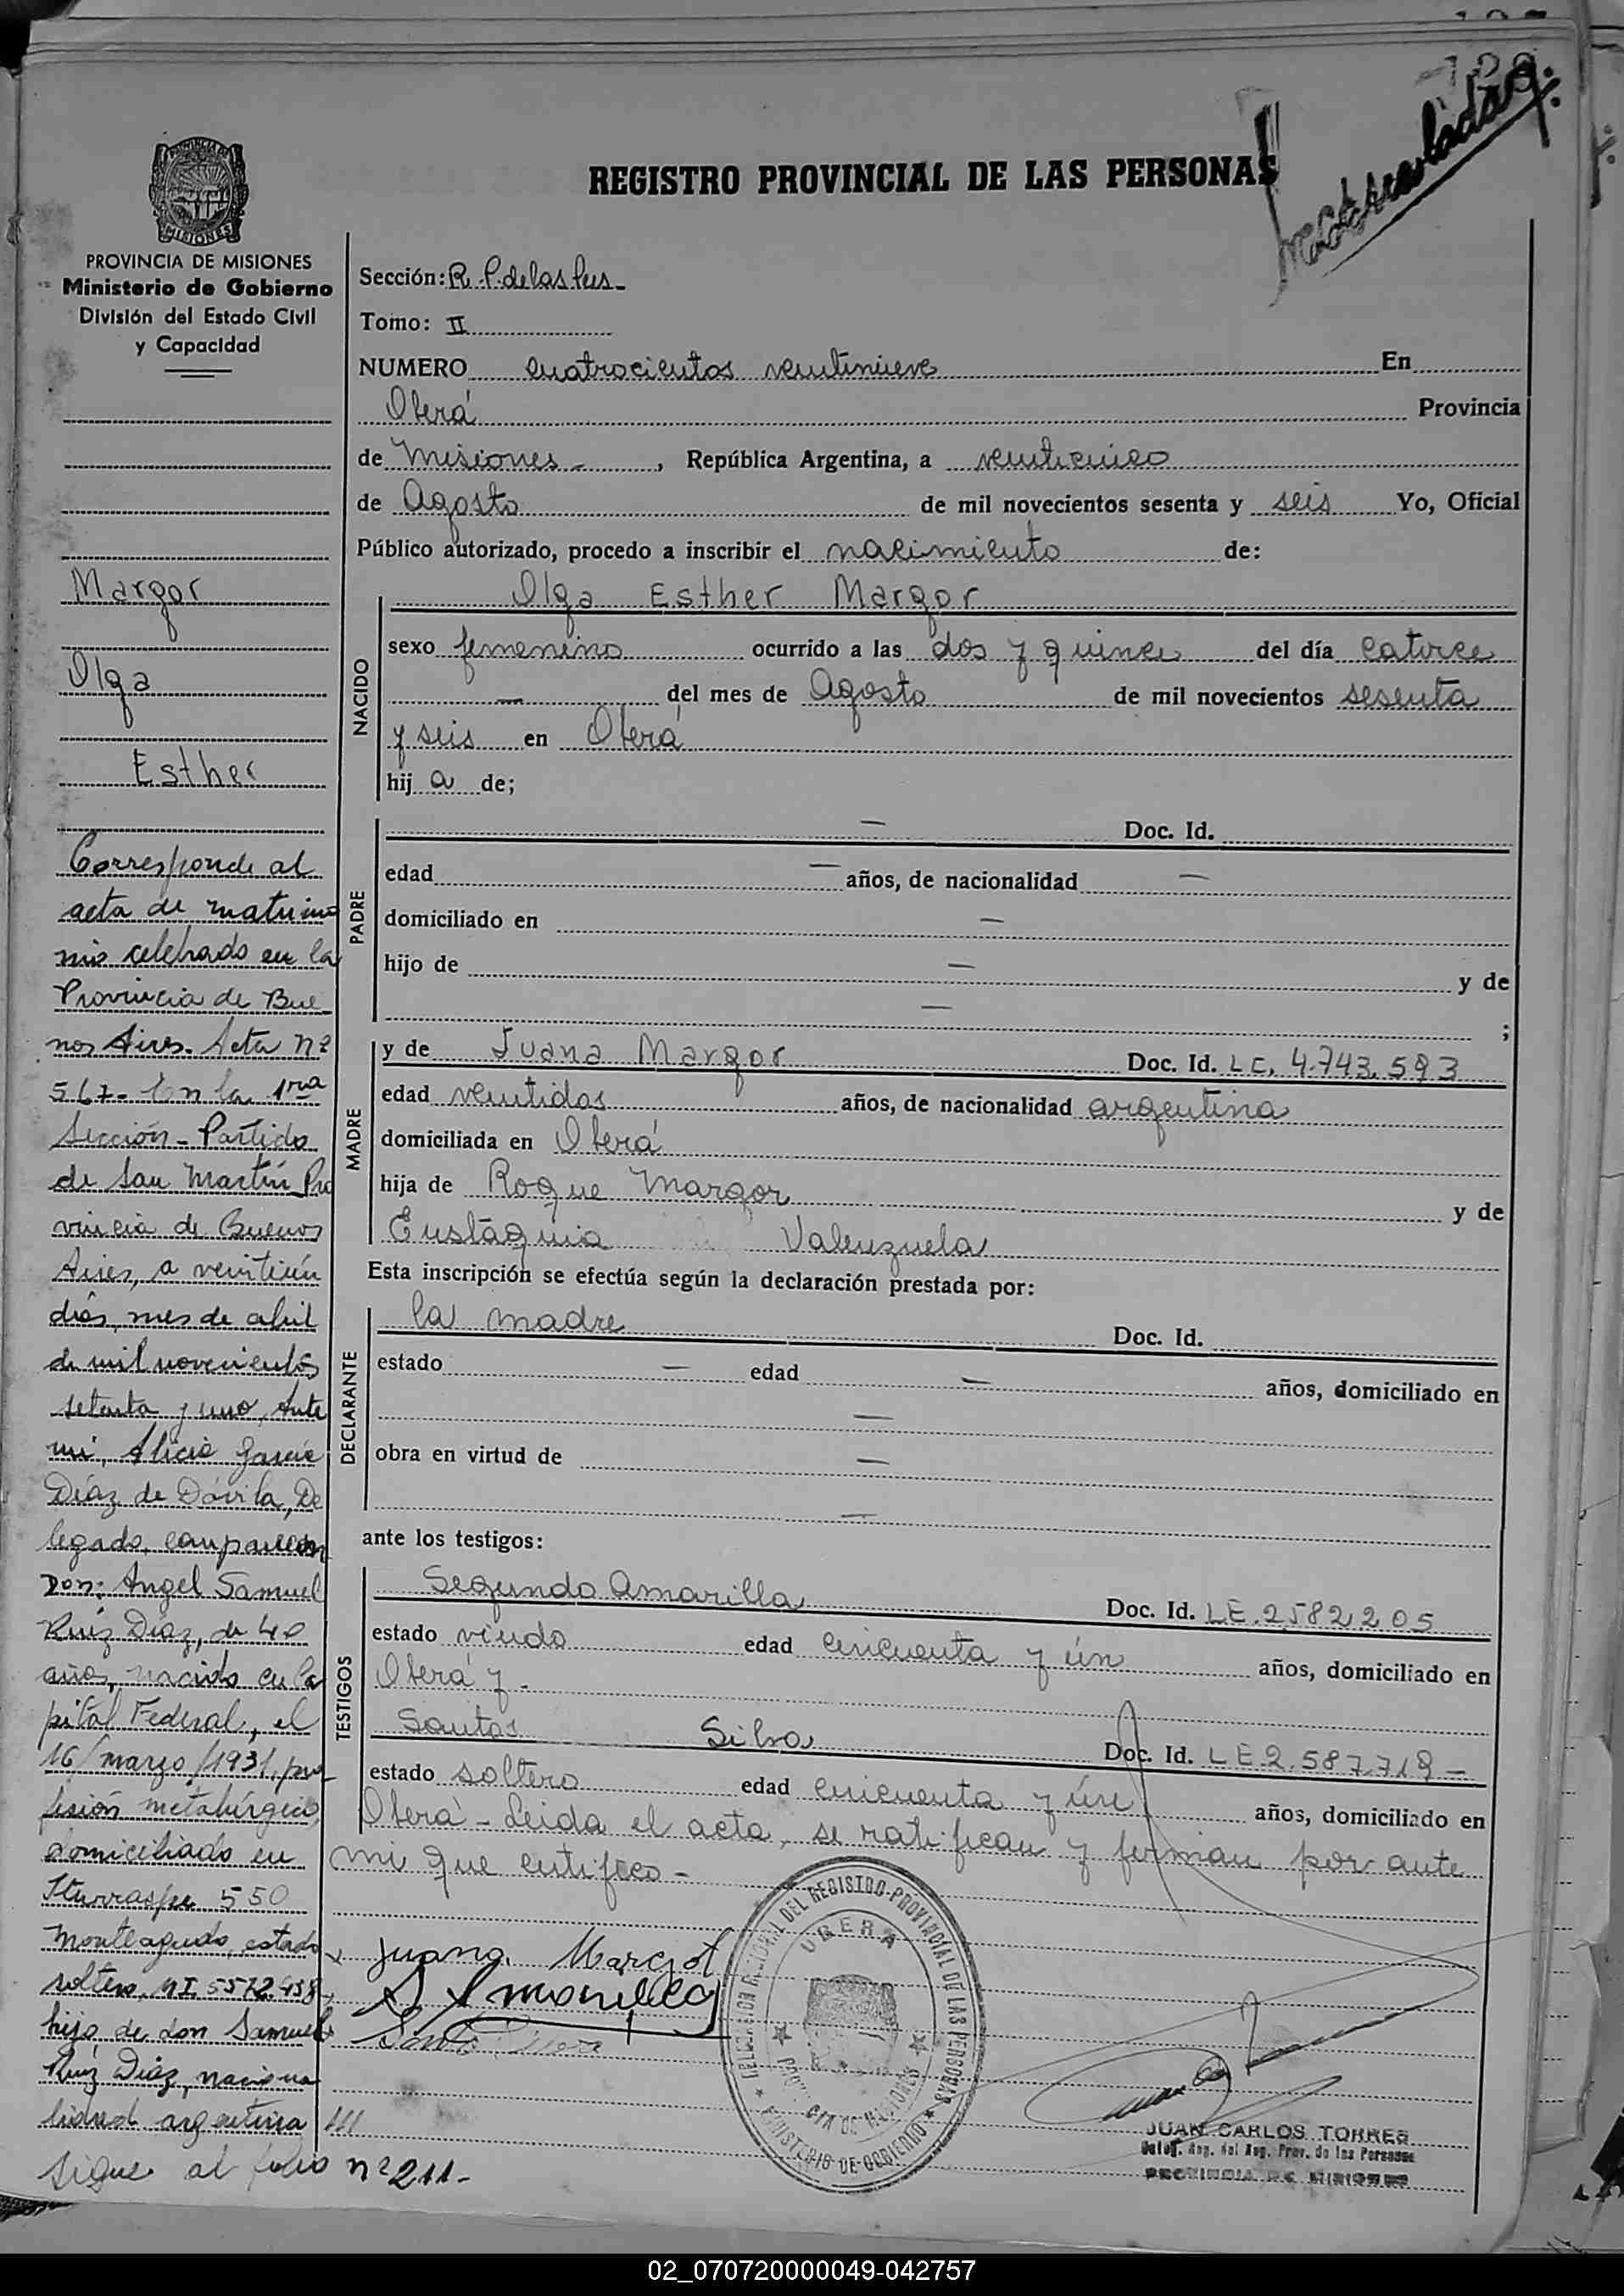 REGISTRO PROVINCIAL DE LAS PERSONAS
PROVINCIA DE
MISIONES
PROVINCIA DE MISIONES
Ministerio de Gobierno
División del Estado Civil
y Capacidad
Margor
Olga
Esther
Corresponde al
acta de matrimo
nio celebrado en la
Provincia de Bue_
nos Aires. Acta nº
567- En la 1ra
Sección - Partido
de San Martín Pro
vincia de Buenos
Aires, a veintiún
días, mes de abril
de mil novecientos
setenta y uno, Ante
mi, Alicia García
Díaz de Dávila, De
legado, comparecen
Don: Angel Samuel
Ruiz Díaz, de 40
años, nacido en Ca
pital Federal, el
16/marzo/1931, pro_
fesión metalúrgico,
domiciliado en
Iturraspe 550
Monteagudo, estado
soltero, M.I. 5572.458,
hijo de don Samuel
Ruiz Díaz, naciona
lidad argentina ///
Sigue al folio nº 211-
Sección: R. P. de las Pers_
Tomo: II
NUMERO cuatrocientos veintinueve En
Oberá Provincia
de Misiones_ , República Argentina, a veinticinco
de Agosto de mil novecientos sesenta y seis Yo, Oficial
Público autorizado, procedo a inscribir el nacimiento de:
NACIDO
Olga Esther Margor
sexo femenino ocurrido a las dos y quince del día catorce
— del mes de Agosto de mil novecientos sesenta
y seis en Oberá
hij a de;
PADRE
— Doc. Id.
edad — años, de nacionalidad —
domiciliado en —
hijo de — y de
— ;
MADRE
y de Juana Margor Doc. Id. LC. 4.743.593
edad veintidos años, de nacionalidad argentina
domiciliada en Oberá
hija de Roque Margor y de
Eustaquia Valenzuela
Esta inscripción se efectúa según la declaración prestada por:
DECLARANTE
la madre Doc. Id.
estado — edad — años, domiciliado en
—
obra en virtud de —
—
ante los testigos:
TESTIGOS
Segundo Amarilla Doc. Id. LE.2.582.205
estado viudo edad cincuenta y ún años, domiciliado en
Oberá y -
Santos Silva Doc. Id. LE.2.587.719-
estado soltero edad cincuenta y ún años, domiciliado en
Oberá - Leida el acta, se ratifican y firman por ante
mi que certifico -
Juana Margot
S Amarilla
DELEGACION REGIONAL DEL REGISTRO PROVINCIAL DE LAS PERSONAS
OBERA
PROVINCIA DE MISIONES
MINISTERIO DE GOBIERNO
JUAN CARLOS TORRES
Deleg. Reg. del Reg. Prov. de las Personas
PROVINCIA DE MISIONES
02_070720000049-042757